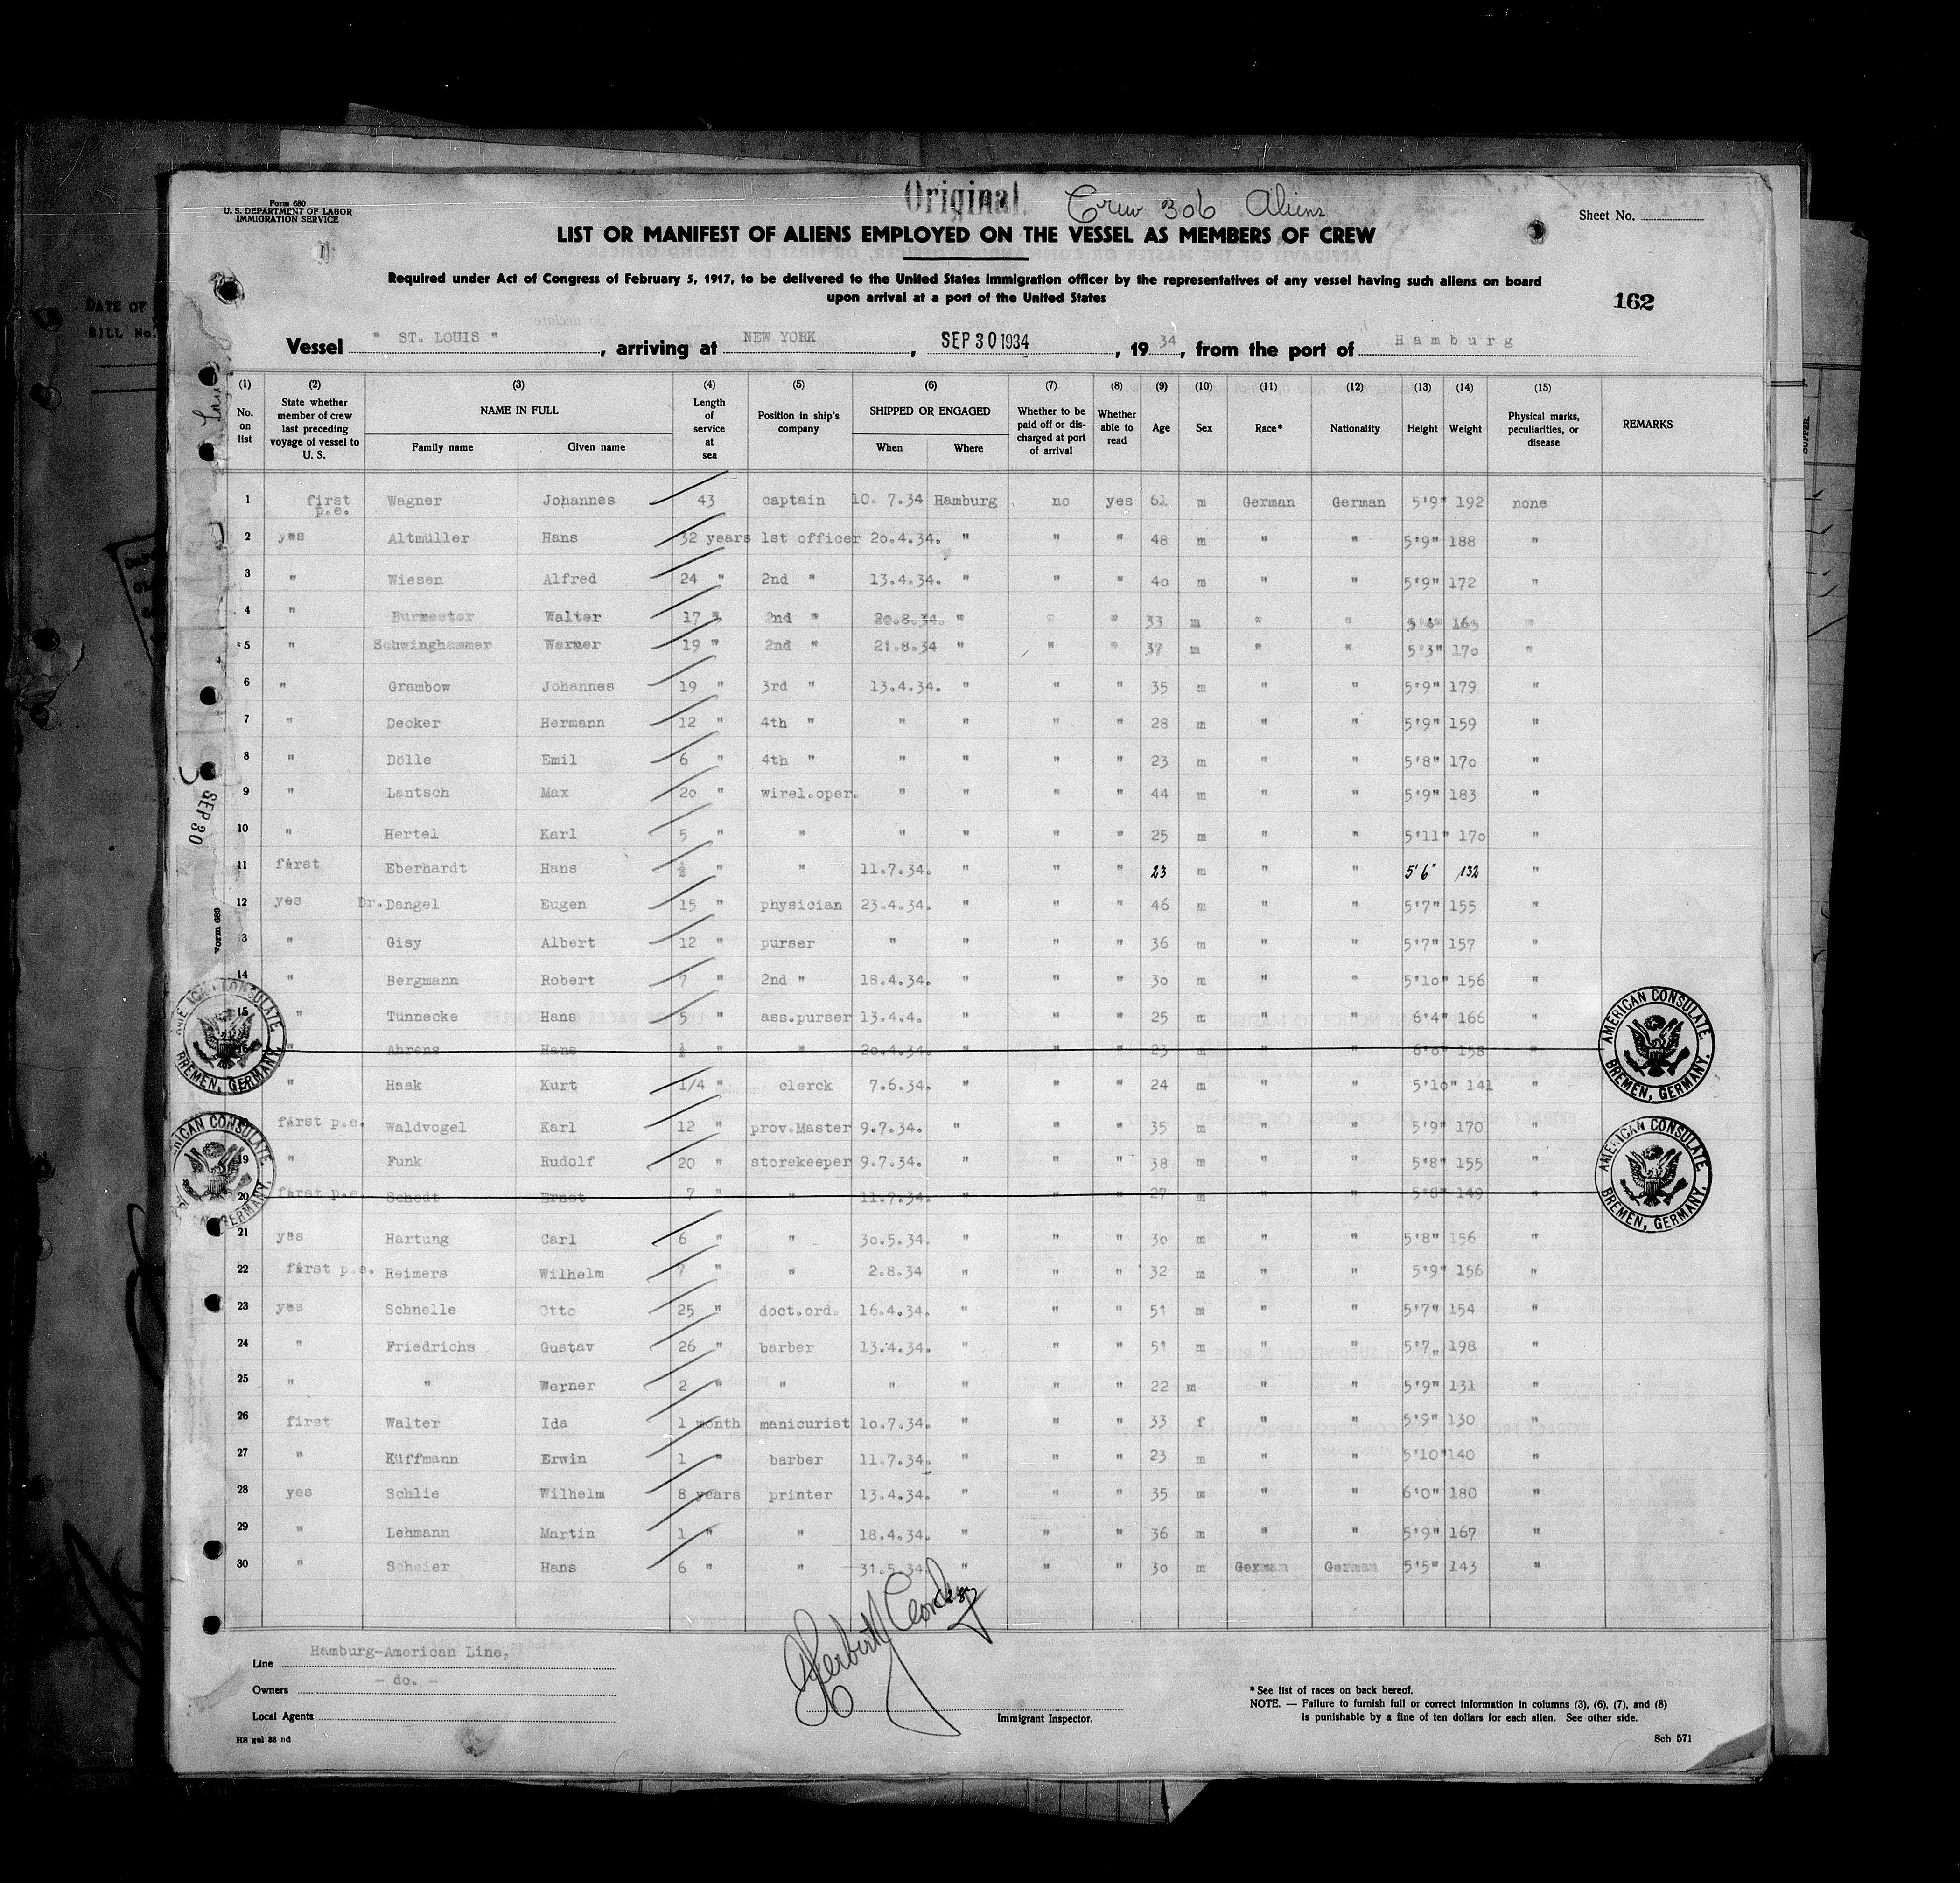 Original
Crew 306 Aliens
Form 680
U. S. DEPARTMENT OF LABOR
IMMIGRATION SERVICE
Sheet No.
LIST OR MANIFEST OF ALIENS EMPLOYED ON THE VESSEL AS MEMBERS OF CREW
Required under Act of Congress of February 5, 1917, to be delivered to the United States immigration officer by the representatives of any vessel having such aliens on board
upon arrival at a port of the United States
162
DATE OF
BILL No.
Vessel " ST. LOUIS " , arriving at NEW YORK , SEP 30 1934 , 19 34 , from the port of Hamburg
(1) (2) (3) (4) (5) (6) (7) (8) (9) (10) (11) (12) (13) (14) (15)
No. on list State whether member of crew last preceding voyage of vessel to U. S. NAME IN FULL Length of service at sea Position in ship's company SHIPPED OR ENGAGED Whether to be paid off or discharged at port of arrival Whether able to read Age Sex Race* Nationality Height Weight Physical marks, peculiarities, or disease REMARKS
Family name Given name When Where
1 first p.e. Wagner Johannes 43 captain 10. 7.34 Hamburg no yes 61 m German German 5'9" 192 none
2 yes Altmüller Hans 32 years 1st officer 20.4.34. " " " 48 m " " 5'9" 188 "
3 " Wiesen Alfred 24 " 2nd " 13.4.34. " " " 40 m " " 5'9" 172 "
4 " Burmester Walter 17 " 2nd " 20.8.34. " " " 33 m " " 5'4" 165 "
5 " Schwinghammer Werner 19 " 2nd " 21.8.34 " " " 37 m " " 5'3" 170 "
6 " Grambow Johannes 19 " 3rd " 13.4.34. " " " 35 m " " 5'9" 179 "
7 " Decker Hermann 12 " 4th " " " " " 28 m " " 5'9" 159 "
8 " Dölle Emil 6 " 4th " " " " " 23 m " " 5'8" 170 "
9 " Lantsch Max 20 " wirel.oper. " " " " 44 m " " 5'9" 183 "
10 " Hertel Karl 5 " " " " " " 25 m " " 5'11" 170 "
11 first Eberhardt Hans ½ " " 11.7.34. " " " 23 m " " 5'6" 132 "
12 yes Dr. Dangel Eugen 15 " physician 23.4.34. " " " 46 m " " 5'7" 155 "
13 " Gisy Albert 12 " purser " " " " 36 m " " 5'7" 157 "
14 " Bergmann Robert 7 " 2nd " 18.4.34. " " " 30 m " " 5'10" 156 "
15 " Tünnecke Hans 5 " ass.purser 13.4.4. " " " 25 m " " 6'4" 166 "
16 " Ahrens Hans ½ " " 20.4.34. " " " 23 m " " 6'0" 158 "
" Haak Kurt 1/4 " clerck 7.6.34. " " " 24 m " " 5'10" 141 "
first p.e. Waldvogel Karl 12 " prov.Master 9.7.34. " " " 35 m " " 5'9" 170 "
19 " Funk Rudolf 20 " storekeeper 9.7.34. " " " 38 m " " 5'8" 155 "
20 first p.e. Schodt Ernst 7 " " 11.7.34. " " " 27 m " " 5'8" 149 "
21 yes Hartung Carl 6 " " 30.5.34. " " " 30 m " " 5'8" 156 "
22 first p.e. Reimers Wilhelm 7 " " 2.8.34 " " " 32 m " " 5'9" 156 "
23 yes Schnelle Otto 25 " doct.ord. 16.4.34. " " " 51 m " " 5'7" 154 "
24 " Friedrichs Gustav 26 " barber 13.4.34. " " " 51 m " " 5'7" 198 "
25 " " Werner 2 " " " " " " 22 m " " 5'9" 131 "
26 first Walter Ida 1 month manicurist 10.7.34. " " " 33 f " " 5'9" 130 "
27 " Küffmann Erwin 1 " barber 11.7.34. " " " 23 m " " 5'10" 140 "
28 yes Schlie Wilhelm 8 years printer 13.4.34. " " " 35 m " " 6'0" 180 "
29 " Lehmann Martin 1 " " 18.4.34. " " " 36 m " " 5'9" 167 "
30 " Scheier Hans 6 " " 31.5.34. " " " 30 m German German 5'5" 143 "
SEP 30
Form 689
AMERICAN CONSULATE
BREMEN, GERMANY.
AMERICAN CONSULATE
BREMEN, GERMANY.
AMERICAN CONSULATE
BREMEN, GERMANY.
AMERICAN CONSULATE
BREMEN, GERMANY.
Line Hamburg-American Line,
Owners - do. -
Local Agents
Immigrant Inspector.
* See list of races on back hereof.
NOTE. — Failure to furnish full or correct information in columns (3), (6), (7), and (8)
is punishable by a fine of ten dollars for each alien. See other side.
HS gel 33 nd
Sch 571